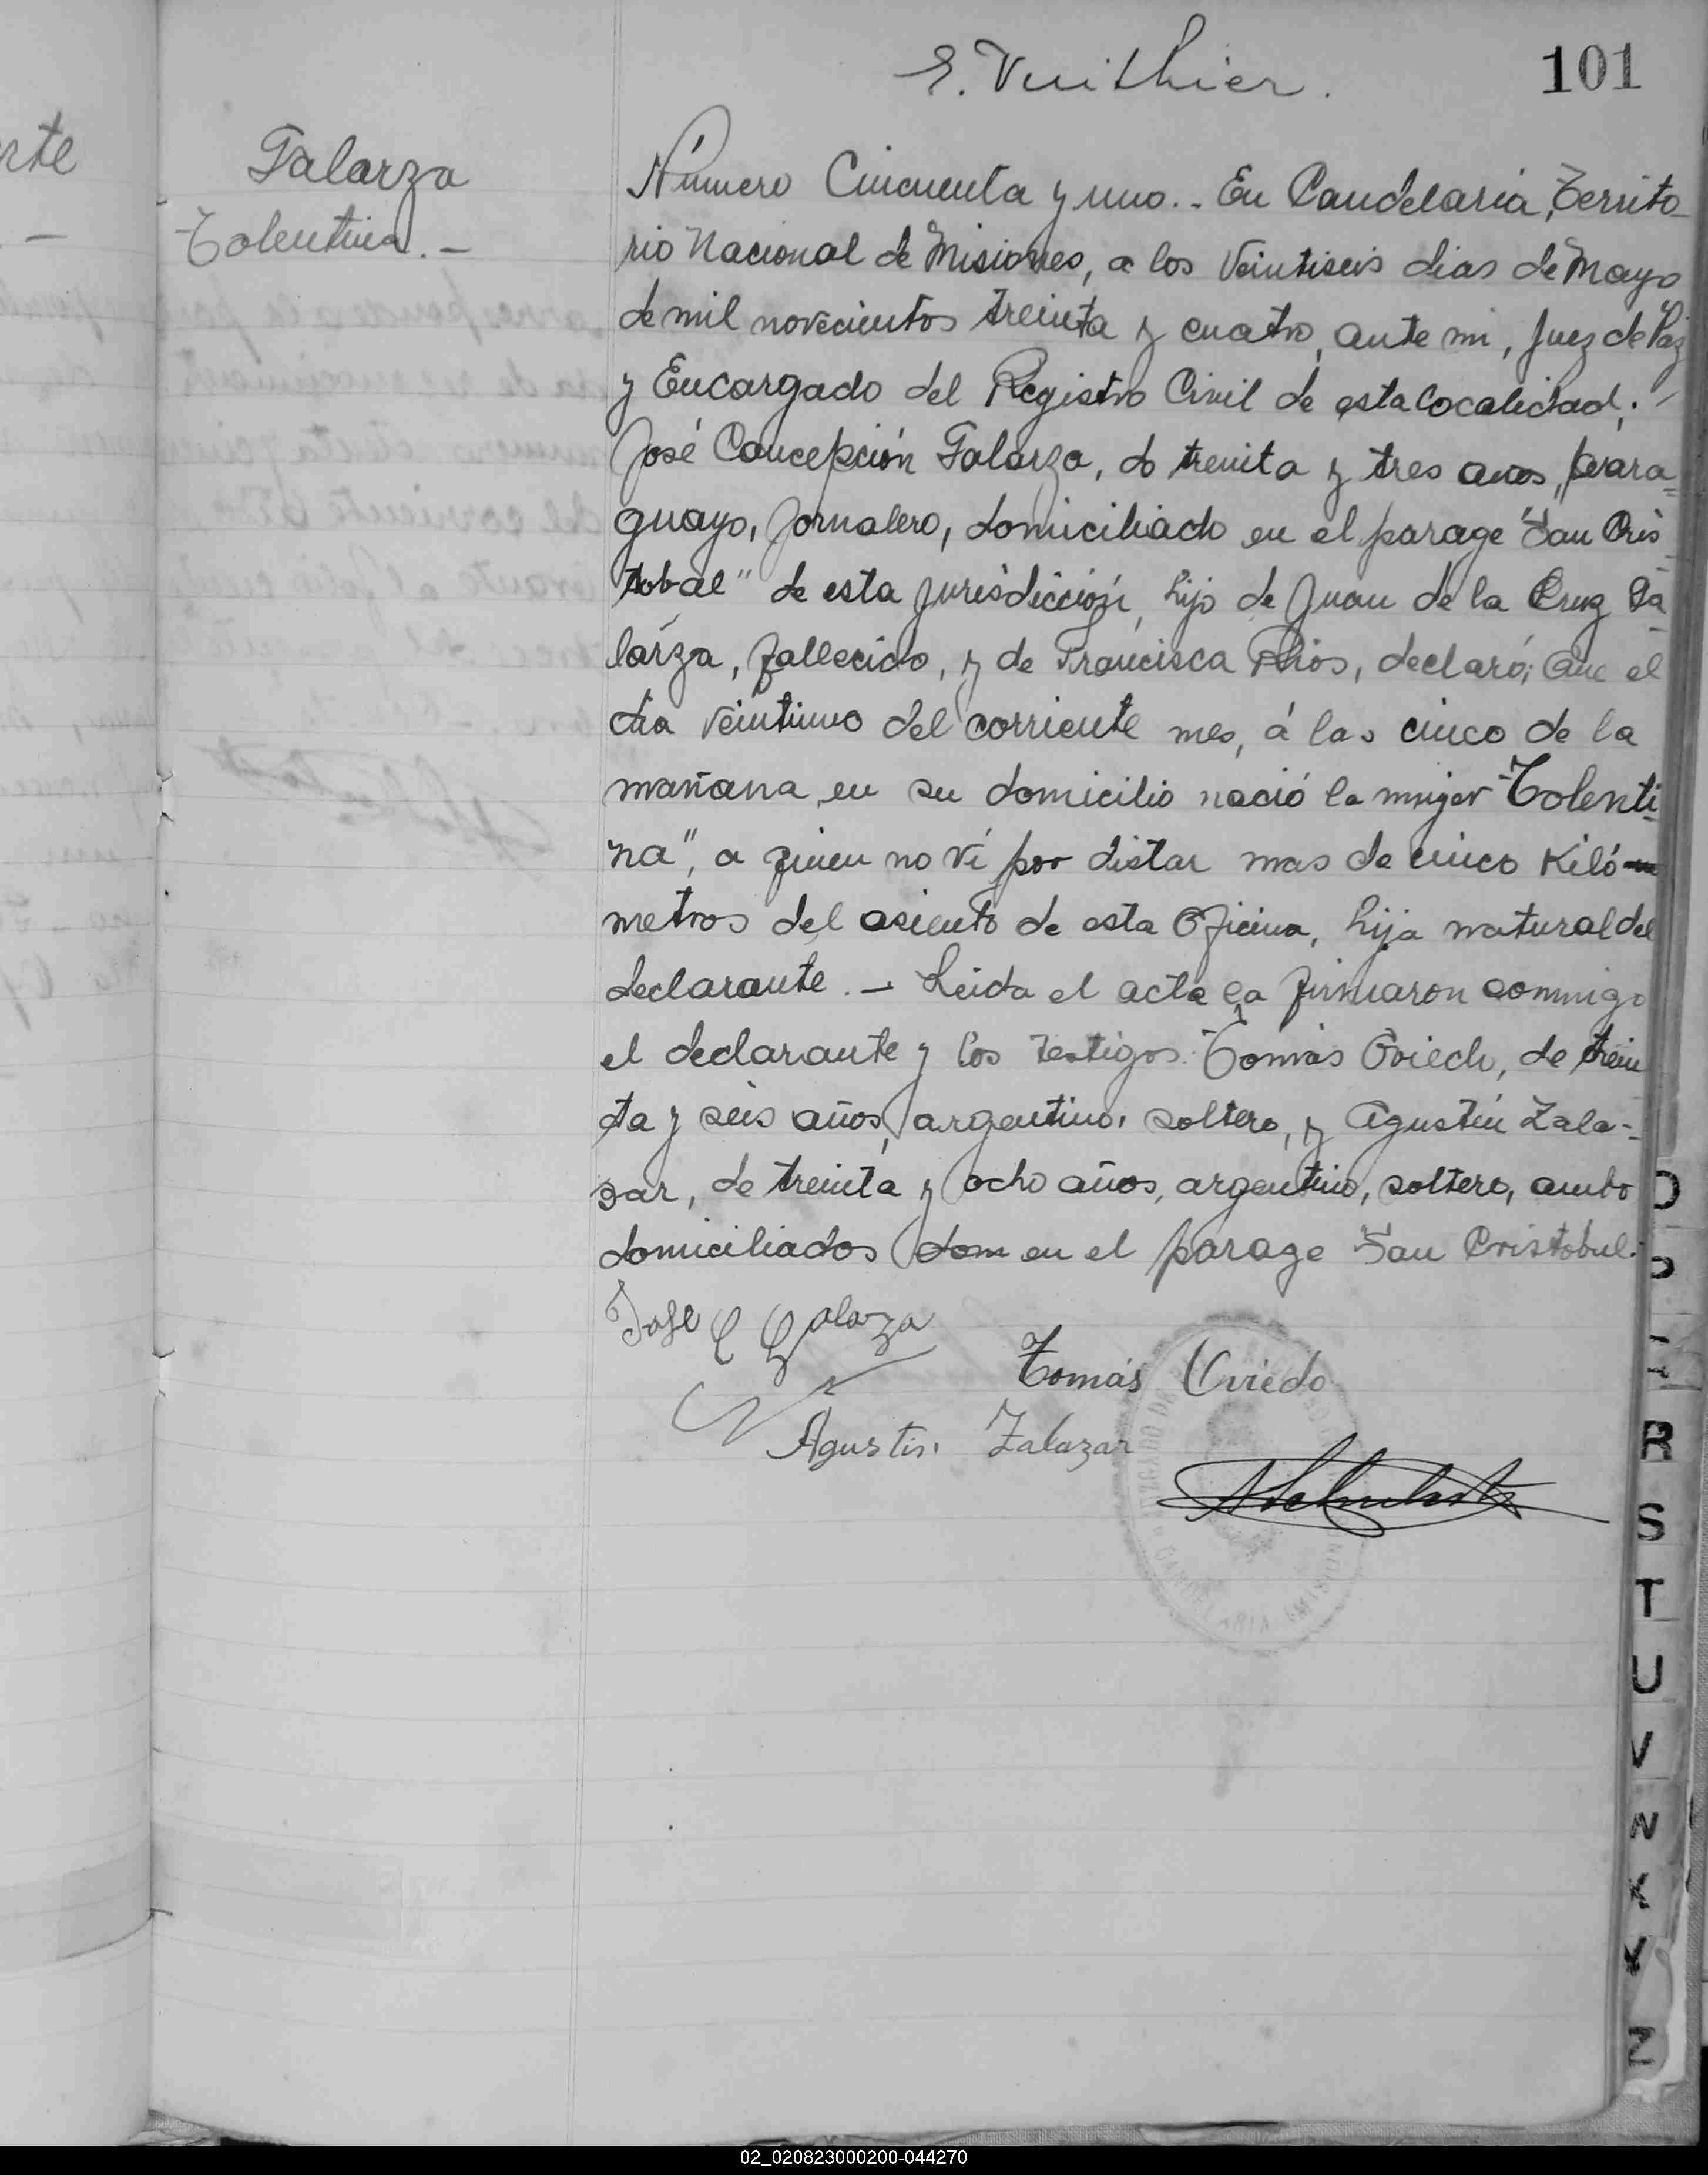 E. Vuithier.
101
rte
Galarza
Tolentina. -
Número Cincuenta y uno.- En Candelaria, Territo-
rio Nacional de Misiones, a los Veintiseis dias de Mayo
de mil novecientos treinta y cuatro, ante mi, Juez de Paz
y Encargado del Registro Civil de esta localidad;
José Concepción Galarza, de treinta y tres años, para-
guayo, jornalero, domiciliado en el parage "San Cris-
tobal" de esta jurisdicción, hijo de Juan de la Cruz Ga-
larza, fallecido, y de Francisca Rios, declaró; Que el
dia veintiuno del corriente mes, á las cinco de la
mañana, en su domicilio nació la mujer "Tolenti-
na", a quien no ví por distar mas de cinco Kiló-
metros del asiento de esta Oficina, hija natural del
declarante. - Leida el acta la firmaron conmigo
el declarante y los testigos: Tomás Oviedo, de trein
ta y seis años, argentino, soltero, y Agustín Zala-
zar, de treinta y ocho años, argentino, soltero, ambo
domiciliados dom en el parage San Cristobal.
Jose C Galarza
Tomás Oviedo
Agustin Zalazar
CANDELARIA
O
P
R
S
T
U
V
W
X
Y
Z
02_020823000200-044270